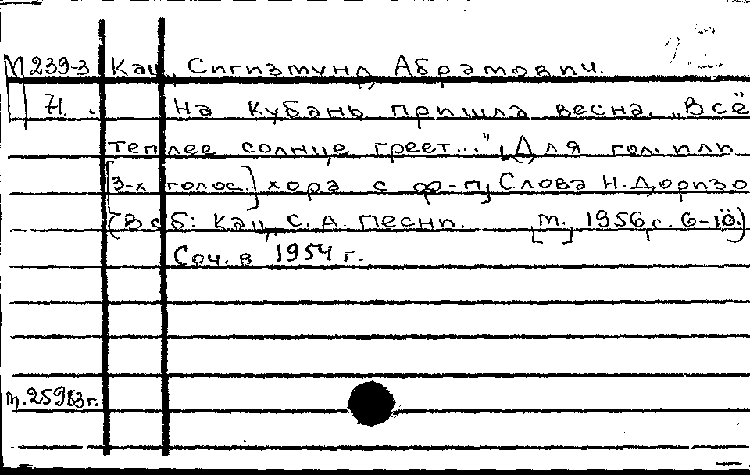 М 239-3 Кац, Сигизмунд Абрамович.
71. На Кубань пришла весна. „Всё
теплее солнце греет..." Для гол. или
[3-х голос.] хора с ф-п. Слова Н. Доризо
(В сб: Кац, С. А. Песни. [М.], 1956, с. 6-10.)
Соч. в 1954 г.
м. 25983г.